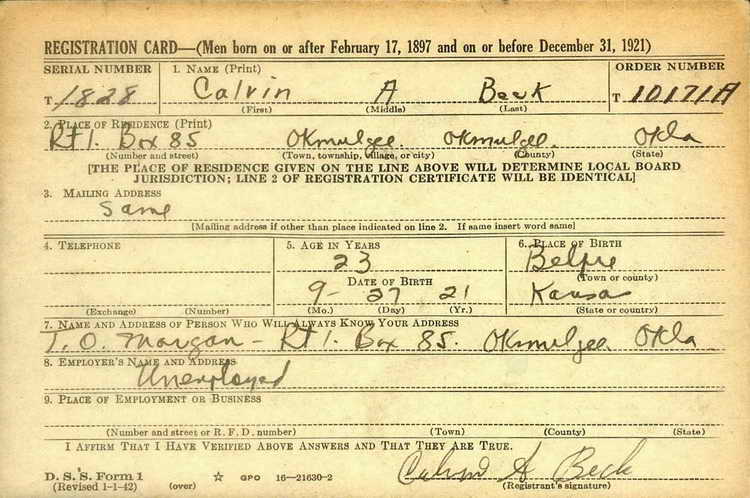 REGISTRATION CARD—(Men born on or after February 17, 1897 and on or before December 31, 1921)
SERIAL NUMBER 1. NAME (Print) ORDER NUMBER
T 1828 Calvin A Beck T 10171A
(First) (Middle) (Last)
2. PLACE OF RESIDENCE (Print)
Rt 1. Box 85 Okmulgee. Okmulgee. Okla
(Number and street) (Town, township, village, or city) (County) (State)
[THE PLACE OF RESIDENCE GIVEN ON THE LINE ABOVE WILL DETERMINE LOCAL BOARD
JURISDICTION; LINE 2 OF REGISTRATION CERTIFICATE WILL BE IDENTICAL]
3. MAILING ADDRESS
Same
[Mailing address if other than place indicated on line 2. If same insert word same]
4. TELEPHONE 5. AGE IN YEARS 6. PLACE OF BIRTH
23 Belpre
DATE OF BIRTH (Town or county)
9- 27 21 Kansas
(Exchange) (Number) (Mo.) (Day) (Yr.) (State or country)
7. NAME AND ADDRESS OF PERSON WHO WILL ALWAYS KNOW YOUR ADDRESS
T. O. Morgan - Rt 1. Box 85. Okmulgee. Okla
8. EMPLOYER'S NAME AND ADDRESS
Unemployed
9. PLACE OF EMPLOYMENT OR BUSINESS
(Number and street or R. F. D. number) (Town) (County) (State)
I AFFIRM THAT I HAVE VERIFIED ABOVE ANSWERS AND THAT THEY ARE TRUE.
D. S. S. Form 1 GPO 16—21630-2 Calvin A Beck
(Revised 1-1-42) (over) (Registrant's signature)